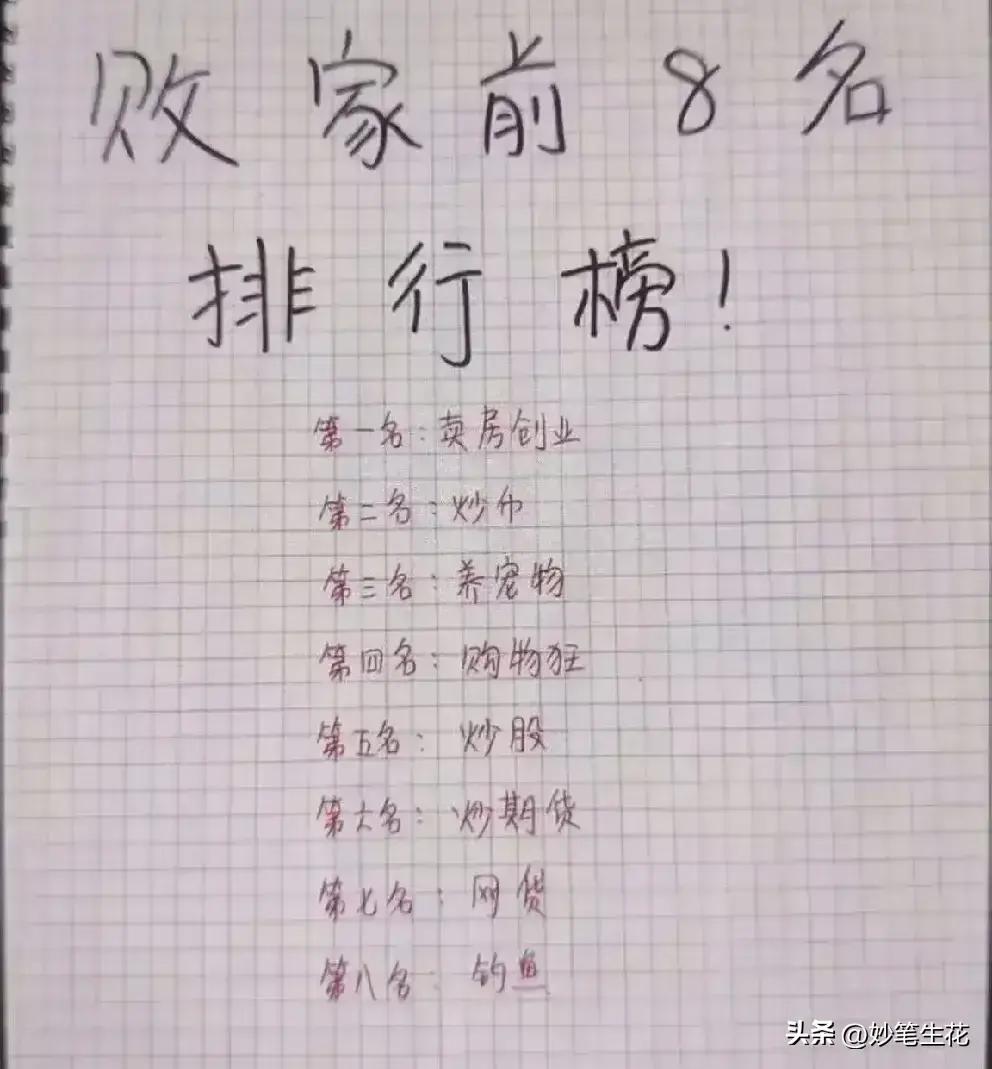 败家前8名
排行榜!
第一名:卖房创业
第二名:炒币
第三名:养宠物
第四名:购物狂
第五名:炒股
第六名:炒期货
第七名:网货
第八名:钓鱼
头条 @妙笔生花